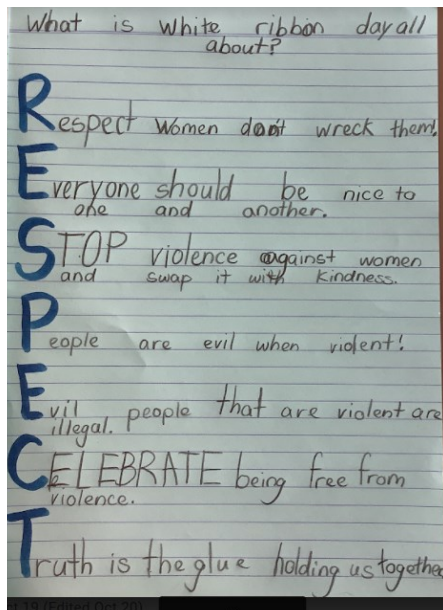 What is white ribbon day all
about?
Respect women don't wreck them!
Everyone should be nice to
one and another.
STOP violence against women
and swap it with kindness.
People are evil when violent!
Evil people that are violent are
illegal.
CELEBRATE being free from
violence.
Truth is the glue holding us together